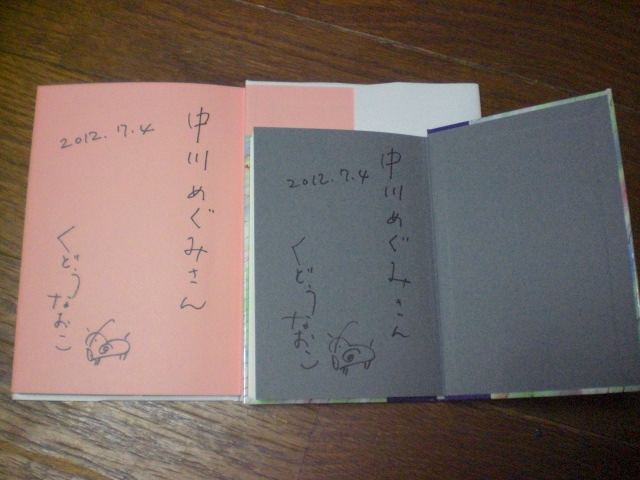 中川めぐみさん
2012.7.4
くどうなおこ
中川めぐみさん
2012.7.4
くどうなおこ